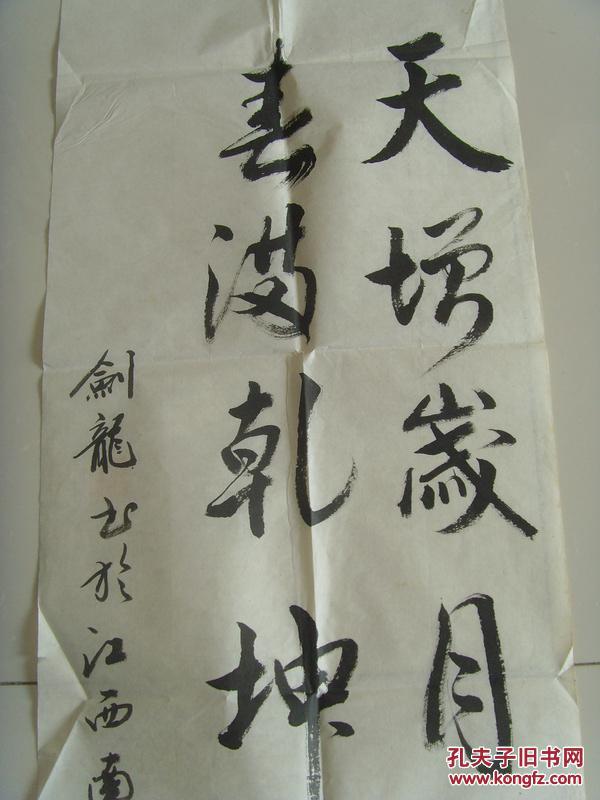 天增歲月
春满乾坤
劍龍书於江西南
孔夫子旧书网
www.kongfz.com